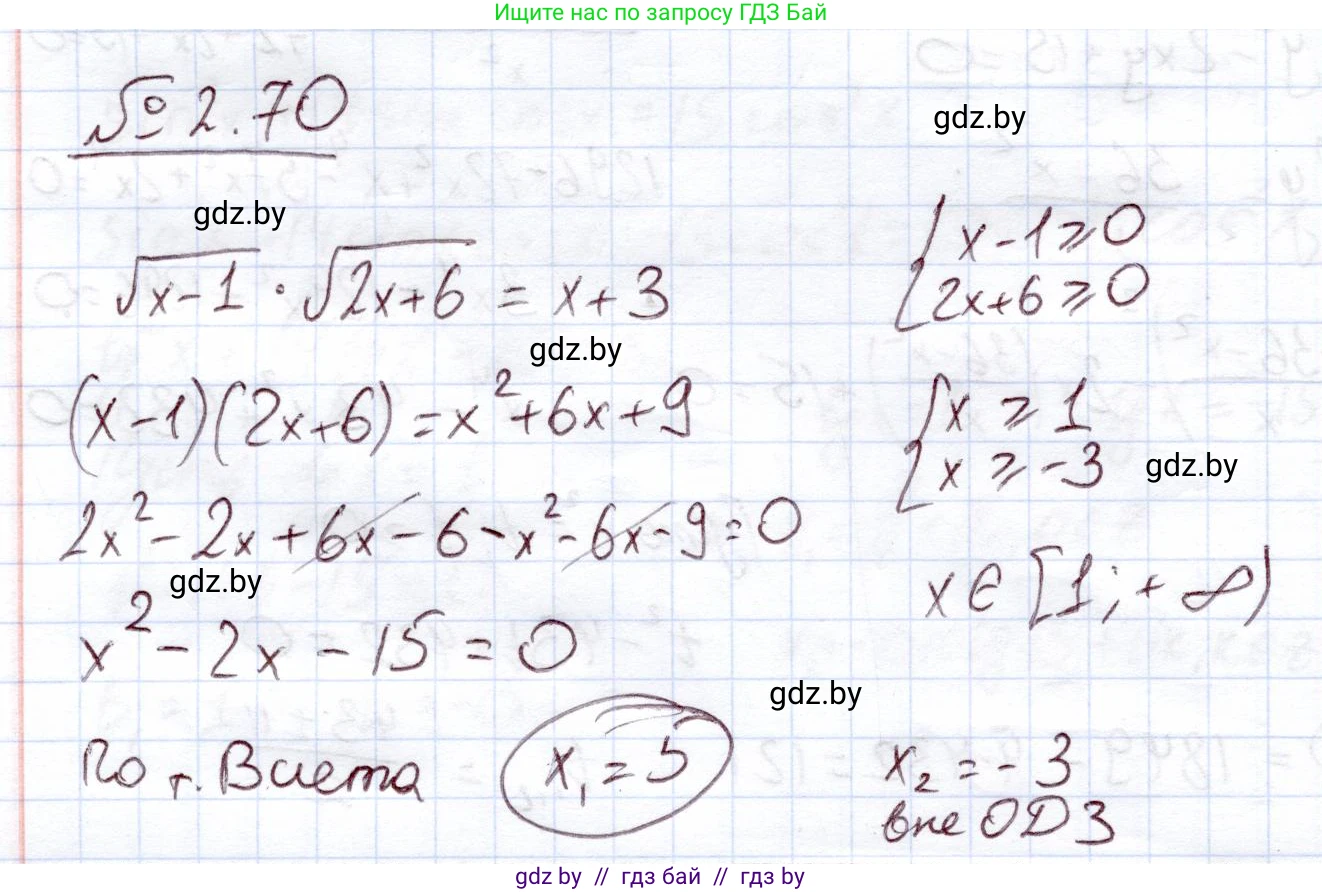 Ищите нас по запросу ГДЗ Бай
№ 2.70
gdz.by
gdz.by
√x-1 · √2x+6 = x+3
{ x-1 ⩾ 0
2x+6 ⩾ 0
gdz.by
(x-1)(2x+6) = x²+6x+9
{ x ⩾ 1
x ⩾ -3
gdz.by
2x² - 2x + 6x - 6 - x² - 6x - 9 = 0
gdz.by
x ∈ [1; +∞)
x² - 2x - 15 = 0
gdz.by
По т. Виета
x₁ = 5
x₂ = -3
вне ОДЗ
gdz by // гдз бай // гдз by